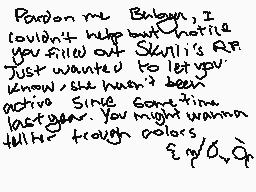 Pardon me Bubgun, I
couldn't help but notice
you filled out Skulli's R.P.
Just wanted to let you
know, she hasn't been
active since some time
last year. You might wanna
tell her trough colors